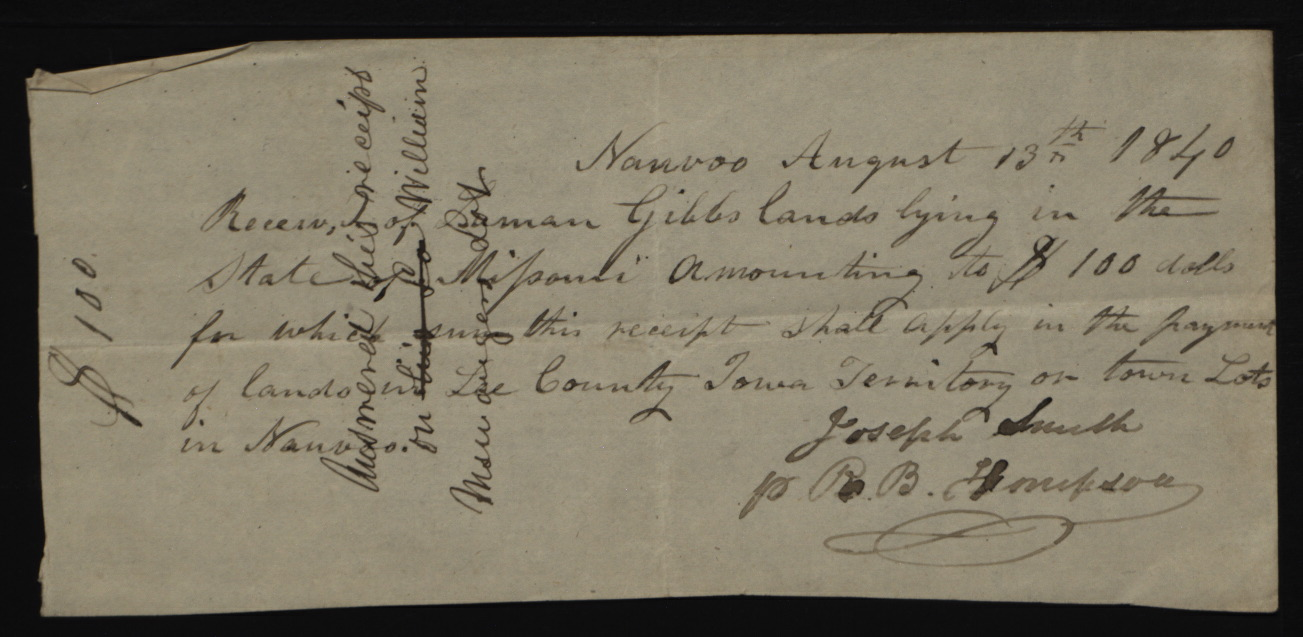 Nauvoo August 13th 1840
Receiv,d of Luman Gibbs lands lying in the
State of Missouri amounting to $ 100 dolls
for which sum this receipt shall apply in the payment
of lands in Lee County Iowa Territory or town Lots
in Nauvoo.
Joseph Smith
p R. B. Thompson
$ 100.
Answered this receipt
on William
Lot